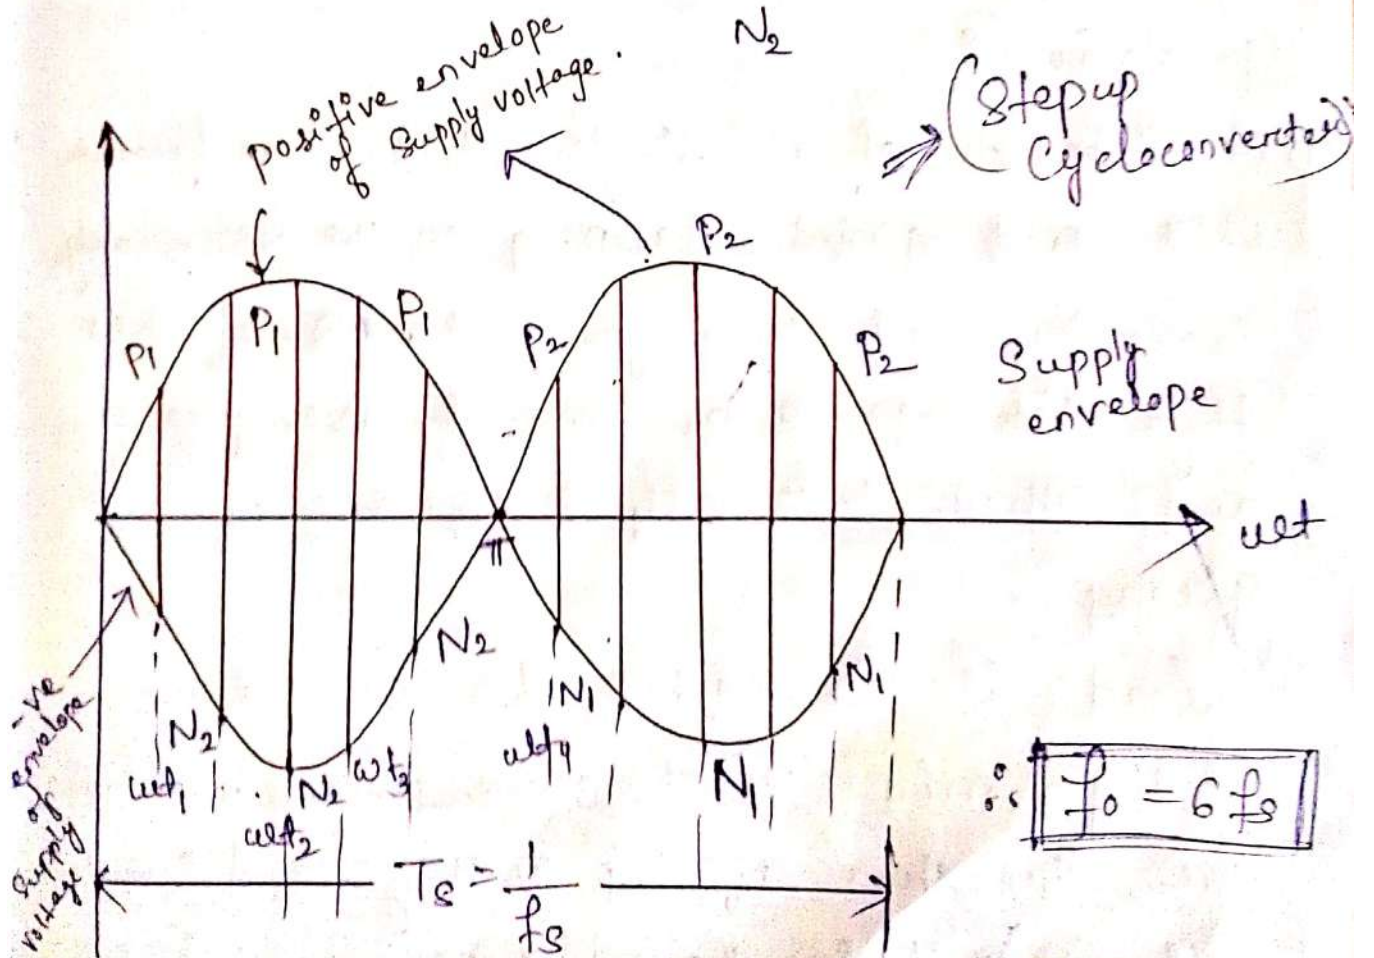 N2
positive envelope
of Supply voltage.
(Stepup
Cycloconverter)
P2
P1
P1
P1
P2
P2
Supply
envelope
π
ωt
N2
N1
N1
-ve
envelope
of
Supply
voltage
N2
ωt1
N2
ωt3
ωt2
ωt4
N1
∴ fo = 6 fs
Ts = 1
fs